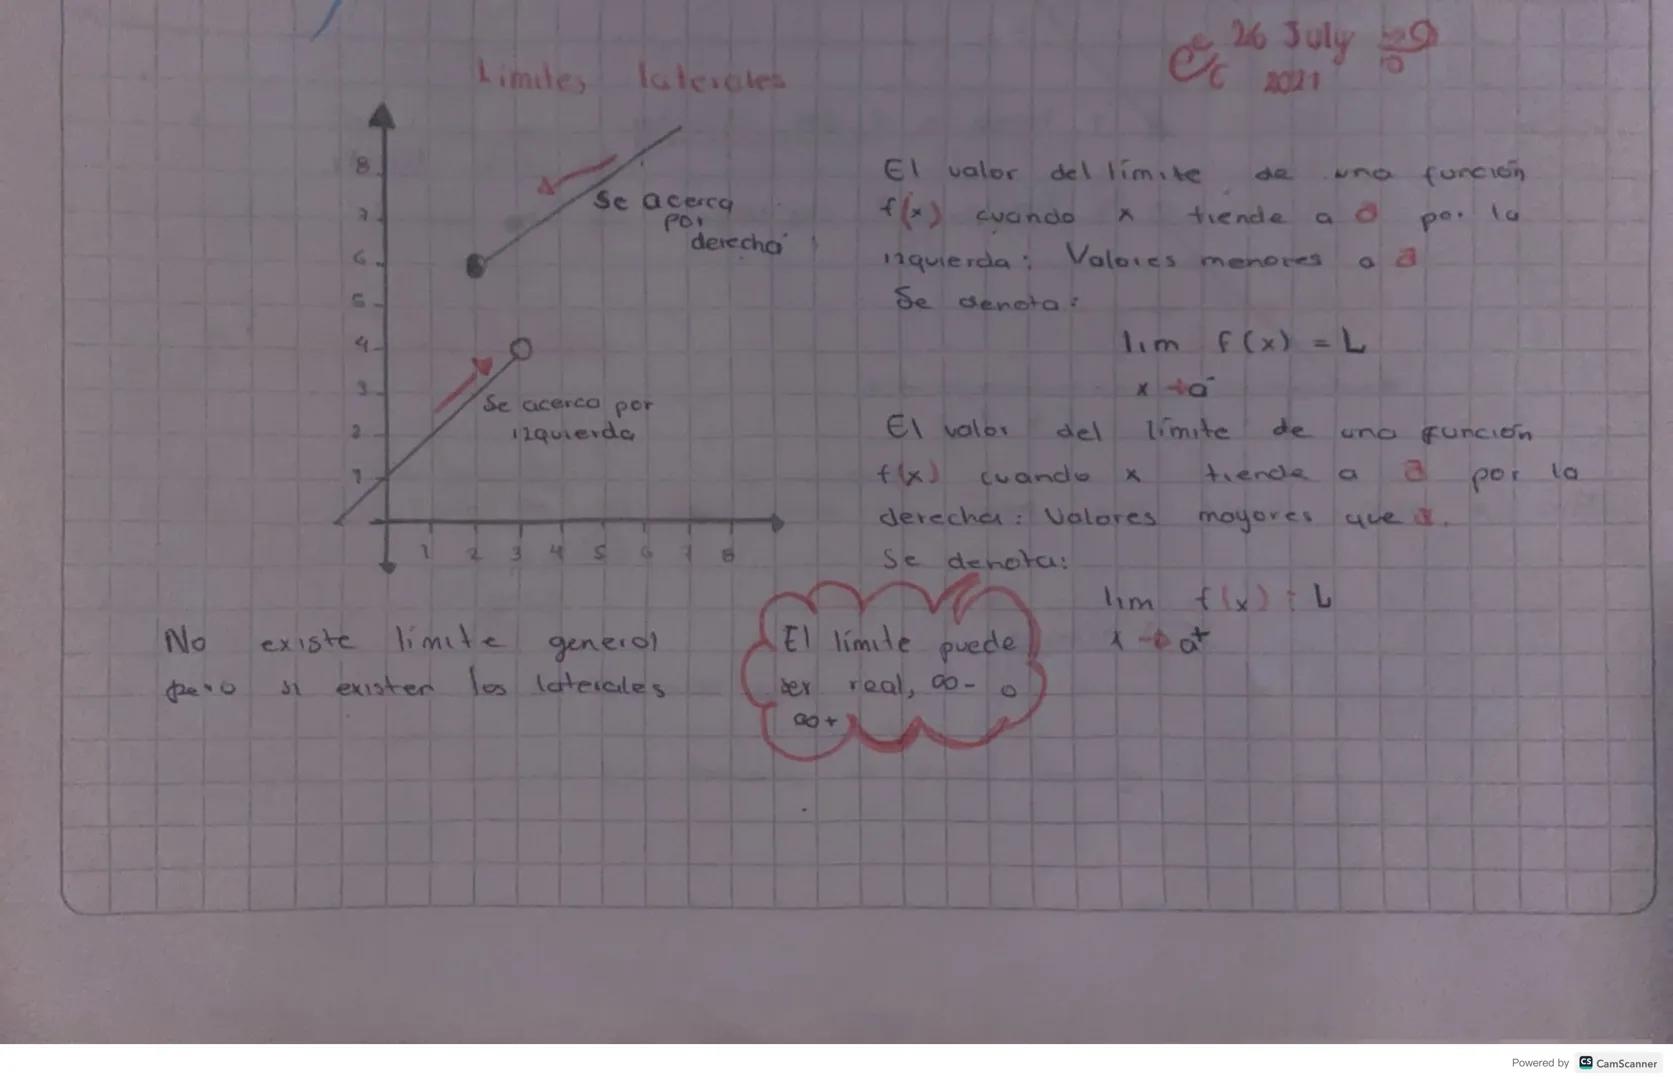 Limites laterales
26 July
2021
8
7
6
5
4
3
2
1
Se acerca
por
derecha
Se acerca por
izquierda
1 2 3 4 5 6 7 8
El valor del límite de una función
f(x) cuando x tiende a a por la
izquierda: Valores menores a a
Se denota:
lim f(x) = L
x→a⁻
El valor del límite de una función
f(x) cuando x tiende a a por la
derecha: Valores mayores que a.
Se denota:
lim f(x) = L
x→a⁺
No existe limite general
pero si existen los laterales
El límite puede
ser real, ∞- o
∞+
Powered by CS CamScanner